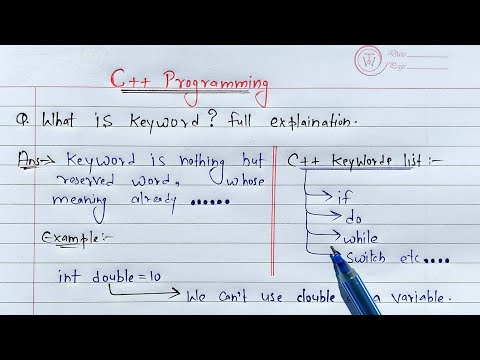 Date:
Page:
C++ Programming
Q. What is keyword? full explaination.
Ans→ Keyword is nothing but
reserved word, whose
meaning already ......
Example:-
int double = 10
We can't use double a variable.
C++ Keywords list :-
if
do
while
switch etc....